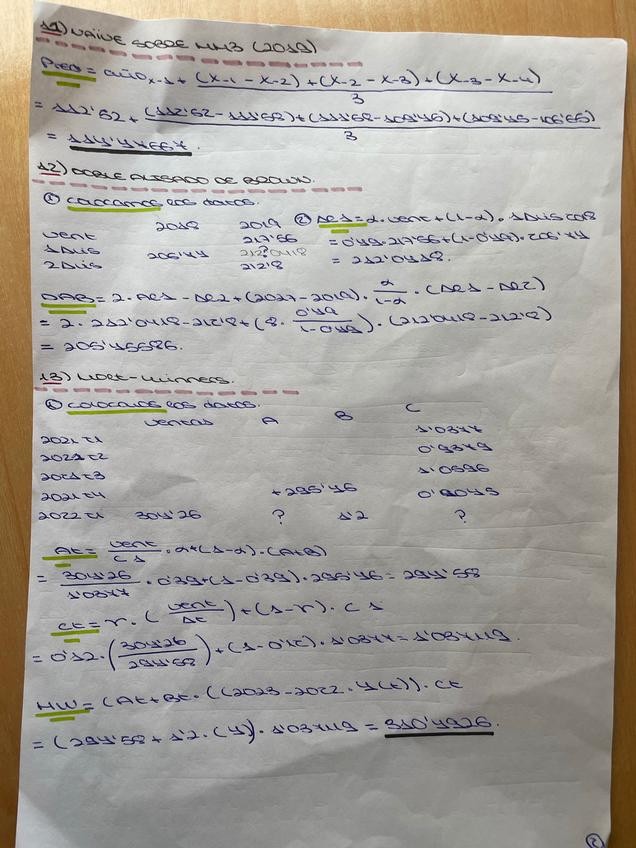 11) NAÏVE SOBRE MM3 (2019)
Pred = año x-1 + (x-1 - x-2) + (x-2 - x-3) + (x-3 - x-4) / 3
= 112'62 + (112'62 - 111'68) + (111'68 - 109'46) + (109'45 - 106'66) / 3
= 114'47667.
12) DOBLE ALISADO DE BROWN.
① Colocamos los datos.
2018 2019
vent 217'56
1Alis 205'44 212'0418 ?
2Alis 212'8
② AL1 = α · vent + (1-α) · 1Alis 2018
= 0'49 · 217'56 + (1-0'49) · 206'44
= 212'0418.
DAB = 2 · AL1 - AL2 + (2027 - 2019) · α/1-α · (AL1 - AL2)
= 2 · 212'0418 - 212'8 + (8 · 0'49/1-0'49) · (212'0418 - 212'8)
= 205'45586.
13) HOLT-WINNERS.
① Colocamos los datos.
ventas A B C
2021 t1 1'0377
2021 t2 0'9379
2021 t3 1'0596
2021 t4 +295'46 0'9045
2022 t1 304'26 ? 1'2 ?
At = vent/C1 · α + (1-α) · (A+B)
= 304'26/1'0377 · 0'39 + (1-0'39) · 295'46 = 294'58
Ct = γ · (vent/At) + (1-γ) · C1
= 0'12 · (304'26/294'58) + (1-0'12) · 1'0377 = 1'037119.
HW = (At + Bt · ((2023 - 2022 · 4(t)) · Ct
= (294'58 + 1'2 · (4)) · 1'037119 = 310'4926.
2